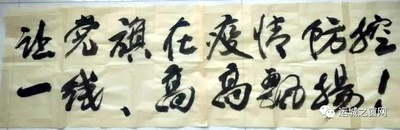 让党旗在疫情防控
一线、高高飘揚！
运城之窗网